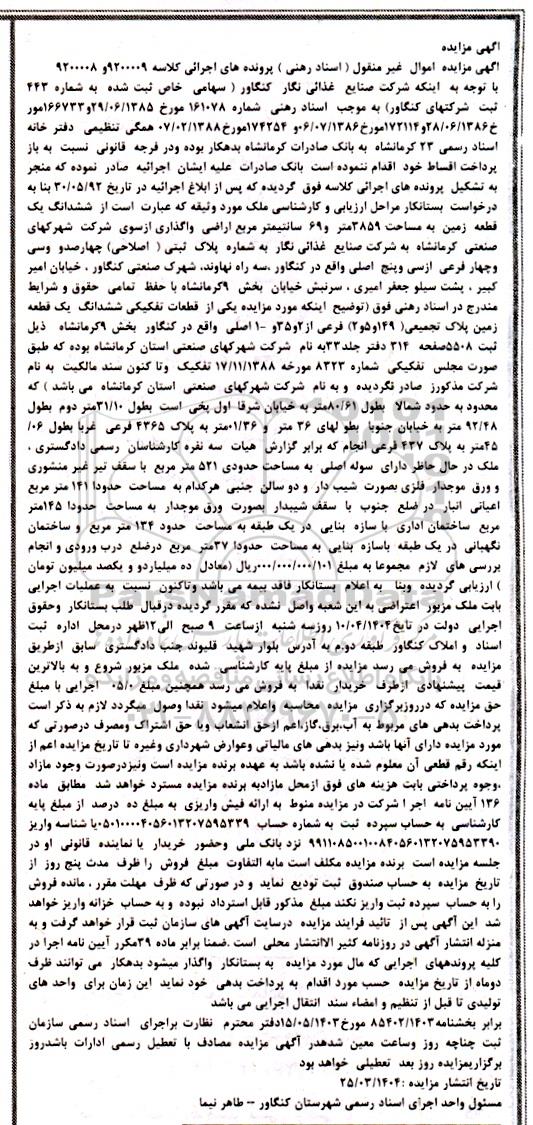 آگهی مزایده
آگهی مزایده اموال غیر منقول ( اسناد رهنی ) پرونده های اجرائی کلاسه ۹۲۰۰۰۰۹و ۹۲۰۰۰۰۸
با توجه به اینکه شرکت صنایع غذائی نگار کنگاور ( سهامی خاص ثبت شده به شماره ۴۴۳
ثبت شرکتهای کنگاور) به موجب اسناد رهنی شماره ۱۶۱۰۷۸ مورخ ۲۹/۰۶/۱۳۸۵و۱۶۶۷۳۳مور
خ۲۸/۰۶/۱۳۸۶و۱۷۲۱۱۴مورخ۰۶/۰۷/۱۳۸۶و ۱۷۴۲۵۴مورخ۰۷/۰۲/۱۳۸۸ همگی تنظیمی دفتر خانه
اسناد رسمی ۲۳ کرمانشاه به بانک صادرات کرمانشاه بدهکار بوده ودر فرجه قانونی نسبت به باز
پرداخت اقساط خود اقدام ننموده است بانک صادرات علیه ایشان اجرائیه صادر نموده که منجر
به تشکیل پرونده های اجرائی کلاسه فوق گردیده که پس از ابلاغ اجرائیه در تاریخ ۳۰/۰۵/۹۲ بنا به
درخواست بستانکار مراحل ارزیابی و کارشناسی ملک مورد وثیقه که عبارت است از ششدانگ یک
قطعه زمین به مساحت ۳۸۵۹متر و۶۹ سانتیمتر مربع اراضی واگذاری ازسوی شرکت شهرکهای
صنعتی کرمانشاه به شرکت صنایع غذائی نگار به شماره پلاک ثبتی ( اصلاحی) چهارصدو وسی
وچهار فرعی ازسی وپنج اصلی واقع در کنگاور ،سه راه نهاوند، شهرک صنعتی کنگاور ، خیابان امیر
کبیر ، پشت سیلو جعفر امیری ، سرنبش خیابان بخش ۹کرمانشاه با حفظ تمامی حقوق و شرایط
مندرج در اسناد رهنی فوق (توضیح اینکه مورد مزایده یکی از قطعات تفکیکی ششدانگ یک قطعه
زمین پلاک تجمیعی( ۱۴۹و۵و۲) فرعی از۲و۳۵و ۱- اصلی واقع در کنگاور بخش ۹کرمانشاه ذیل
ثبت ۵۵۰۸صفحه ۳۱۴ دفتر جلد۳۳به نام شرکت شهرکهای صنعتی استان کرمانشاه بوده که طبق
صورت مجلس تفکیکی شماره ۸۳۲۳ مورخه ۱۷/۱۱/۱۳۸۸ تفکیک وتا کنون سند مالکیت به نام
شرکت مذکورز صادر نگردیده و به نام شرکت شهرکهای صنعتی استان کرمانشاه می باشد ) که
محدود به حدود شمالا بطول ۸۰/۶۱متر به خیابان شرقا اول پخی است بطول ۳۱/۱۰متر دوم بطول
۹۲/۴۸ متر به خیابان جنوبا بطو لهای ۳۶ متر و ۰۱/۳۶متر به پلاک ۴۳۶۵ فرعی غربا بطول ۰۶/
۴۵متر به پلاک ۴۳۷ فرعی انجام که برابر گزارش هیات سه نفره کارشناسان رسمی دادگستری ،
ملک در حال حاظر دارای سوله اصلی به مساحت حدودی ۵۲۱ متر مربع با سقف تیر غیر منشوری
و ورق موجدار فلزی بصورت شیب دار و دو سالن جنبی هرکدام به مساحت حدودا ۱۴۱ متر مربع
اعیانی انبار در ضلع جنوب با سقف شیبدار بصورت ورق موجدار به مساحت حدودا ۱۴۵متر
مربع ساختمان اداری با سازه بنایی در یک طبقه به مساحت حدود ۱۳۴ متر مربع و ساختمان
نگهبانی در یک طبقه باسازه بنایی به مساحت حدودا ۳۷متر مربع درضلع درب ورودی و انجام
بررسی های لازم مجموعا به مبلغ ۰۰۰/۰۰۰/۰۰۰/۱۰۱ریال (معادل ده میلیاردو و یکصد میلیون تومان
) ارزیابی گردیده وبنا به اعلام بستانکار فاقد بیمه می باشد وتاکنون نسبت به عملیات اجرایی
بابت ملک مزبور اعتراضی به این شعبه واصل نشده که مقرر گردیده درقبال طلب بستانکار وحقوق
اجرایی دولت در تایخ۱۰/۰۴/۱۴۰۴ روزسه شنبه ازساعت ۹ صبح الی۱۲ظهر درمحل اداره ثبت
اسناد و املاک کنگاور طبقه دوم به آدرس بلوار شهید قلیوند جنب دادگستری سابق ازطریق
مزایده به فروش می رسد مزایده از مبلغ پایه کارشناسی شده ملک مزبور شروع و به بالاترین
قیمت پیشنهادی ازطرف خریدار نقدا به فروش می رسد همچنین مبلغ ۰/۰۵ اجرایی با مبلغ
حق مزایده که درروزبرگزاری مزایده محاسبه واعلام میشود نقدا وصول میگردد لازم به ذکر است
پرداخت بدهی های مربوط به آب،برق،گاز،اعم ازحق انشعاب ویا حق اشتراک ومصرف درصورتی که
مورد مزایده دارای آنها باشد ونیز بدهی های مالیاتی وعوارض شهرداری وغیره تا تاریخ مزایده اعم از
اینکه رقم قطعی آن معلوم شده یا نشده باشد به عهده برنده مزایده است ونیزدرصورت وجود مازاد
،وجوه پرداختی بابت هزینه های فوق ازمحل مازادبه برنده مزایده مسترد خواهد شد مطابق ماده
۱۳۶ آیین نامه اجر ا شرکت در مزایده منوط به ارائه فیش واریزی به مبلغ ده درصد از مبلغ پایه
کارشناسی به حساب سپرده ثبت به شماره حساب ۰۵۰۱۰۰۰۰۴۰۵۶۰۱۳۲۰۷۵۹۵۳۳۹با شناسه واریز
۹۹۱۱۰۸۵۰۰۱۰۰۸۴۰۵۶۰۱۳۲۰۷۵۹۵۳۳۹۰ نزد بانک ملی وحضور خریدار یا نماینده قانونی او در
جلسه مزایده است برنده مزایده مکلف است مابه التفاوت مبلغ فروش را ظرف مدت پنج روز از
تاریخ مزایده به حساب صندوق ثبت تودیع نماید و در صورتی که ظرف مهلت مقرر ، مانده فروش
را به حساب سپرده ثبت واریز نکند مبلغ مذکور قابل استرداد نبوده و به حساب خزانه واریز خواهد
شد این آگهی پس از تائید فرایند مزایده درسایت آگهی های سازمان ثبت قرار خواهد گرفت و به
منزله انتشار آگهی در روزنامه کثیر الاانتشار محلی است .ضمنا برابر ماده ۳۹مکرر آیین نامه اجرا در
کلیه پروندههای اجرایی که مال مورد مزایده به بستانکار واگذار میشود بدهکار می توانند ظرف
دوماه از تاریخ مزایده حسب مورد اقدام به پرداخت بدهی خود نماید این زمان برای واحد های
تولیدی تا قبل از تنظیم و امضاء سند انتقال اجرایی می باشد
برابر بخشنامه۸۵۴۰۲/۱۴۰۳ مورخ۱۵/۰۵/۱۴۰۳دفتر محترم نظارت براجرای اسناد رسمی سازمان
ثبت چناچه روز وساعت معین شدهدر آگهی مزایده مصادف با تعطیل رسمی ادارات باشدروز
برگزاریمزایده روز بعد تعطیلی خواهد بود
تاریخ انتشار مزایده :۲۵/۰۳/۱۴۰۴
مسئول واحد اجرای اسناد رسمی شهرستان کنگاور – طاهر نیما